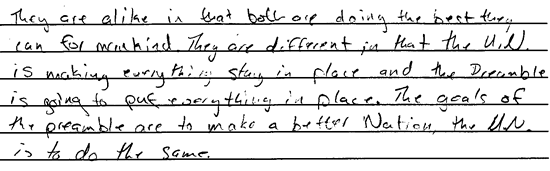 They are alike in that both are doing the best they
can for mankind. They are different in that the U.N.
is making everything stay in place and the Preamble
is going to put everything in place. The goals of
the preamble are to make a better Nation, the U.N.
is to do the same.